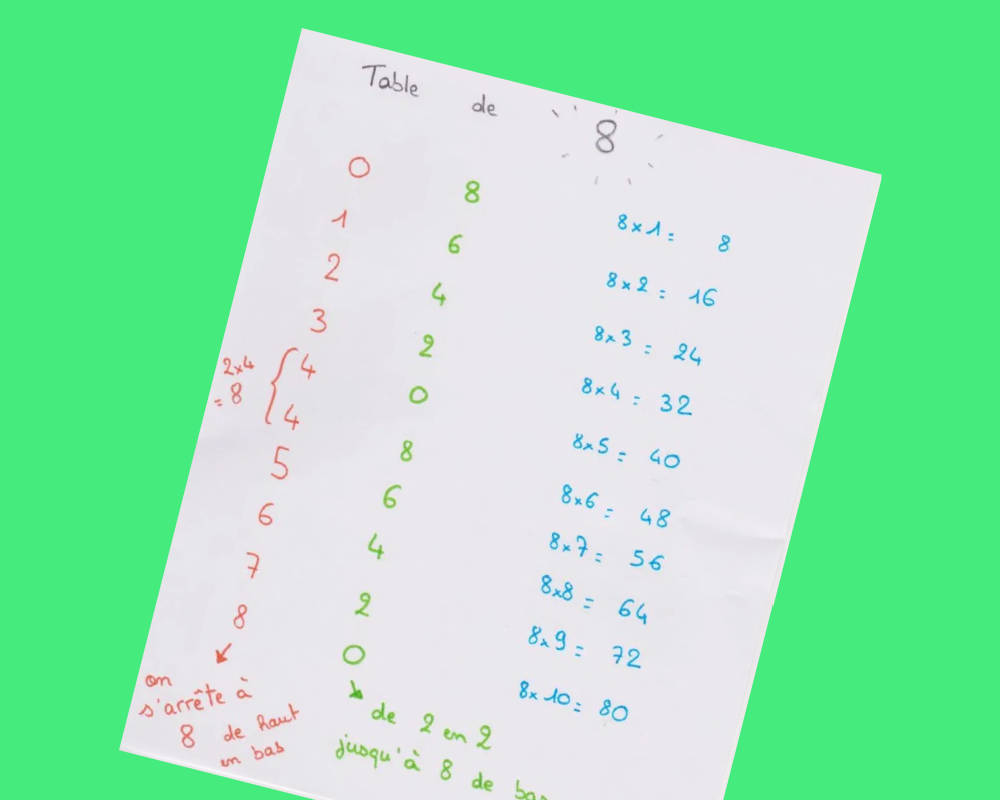 Table de 8
0 8
1 6 8 x 1 = 8
2 4 8 x 2 = 16
3 2 8 x 3 = 24
4 0 8 x 4 = 32
2x4
= 8
4 8 8 x 5 = 40
5 6 8 x 6 = 48
6 4 8 x 7 = 56
7 2 8 x 8 = 64
8 0 8 x 9 = 72
8 x 10 = 80
on
s'arrête à
8 de haut
en bas
de 2 en 2
jusqu'à 8 de